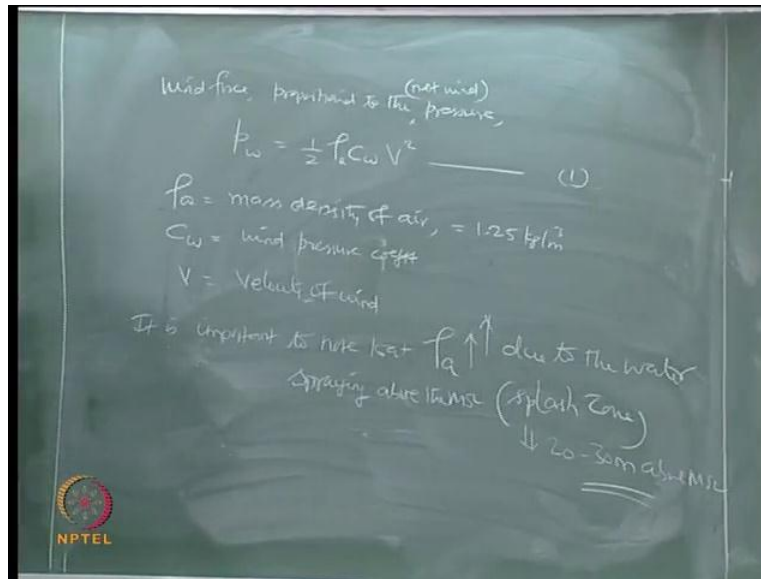 wind force, proportional to the (net wind) pressure,
pw = 1/2 ρa Cw V² ——— (1)
ρa = mass density of air, = 1.25 kg/m³
Cw = wind pressure coefft
V = Velocity of wind
It is important to note that ρa ↑↑ due to the water
spraying above the MSL (splash zone)
⇓ 20-30m above MSL
NPTEL